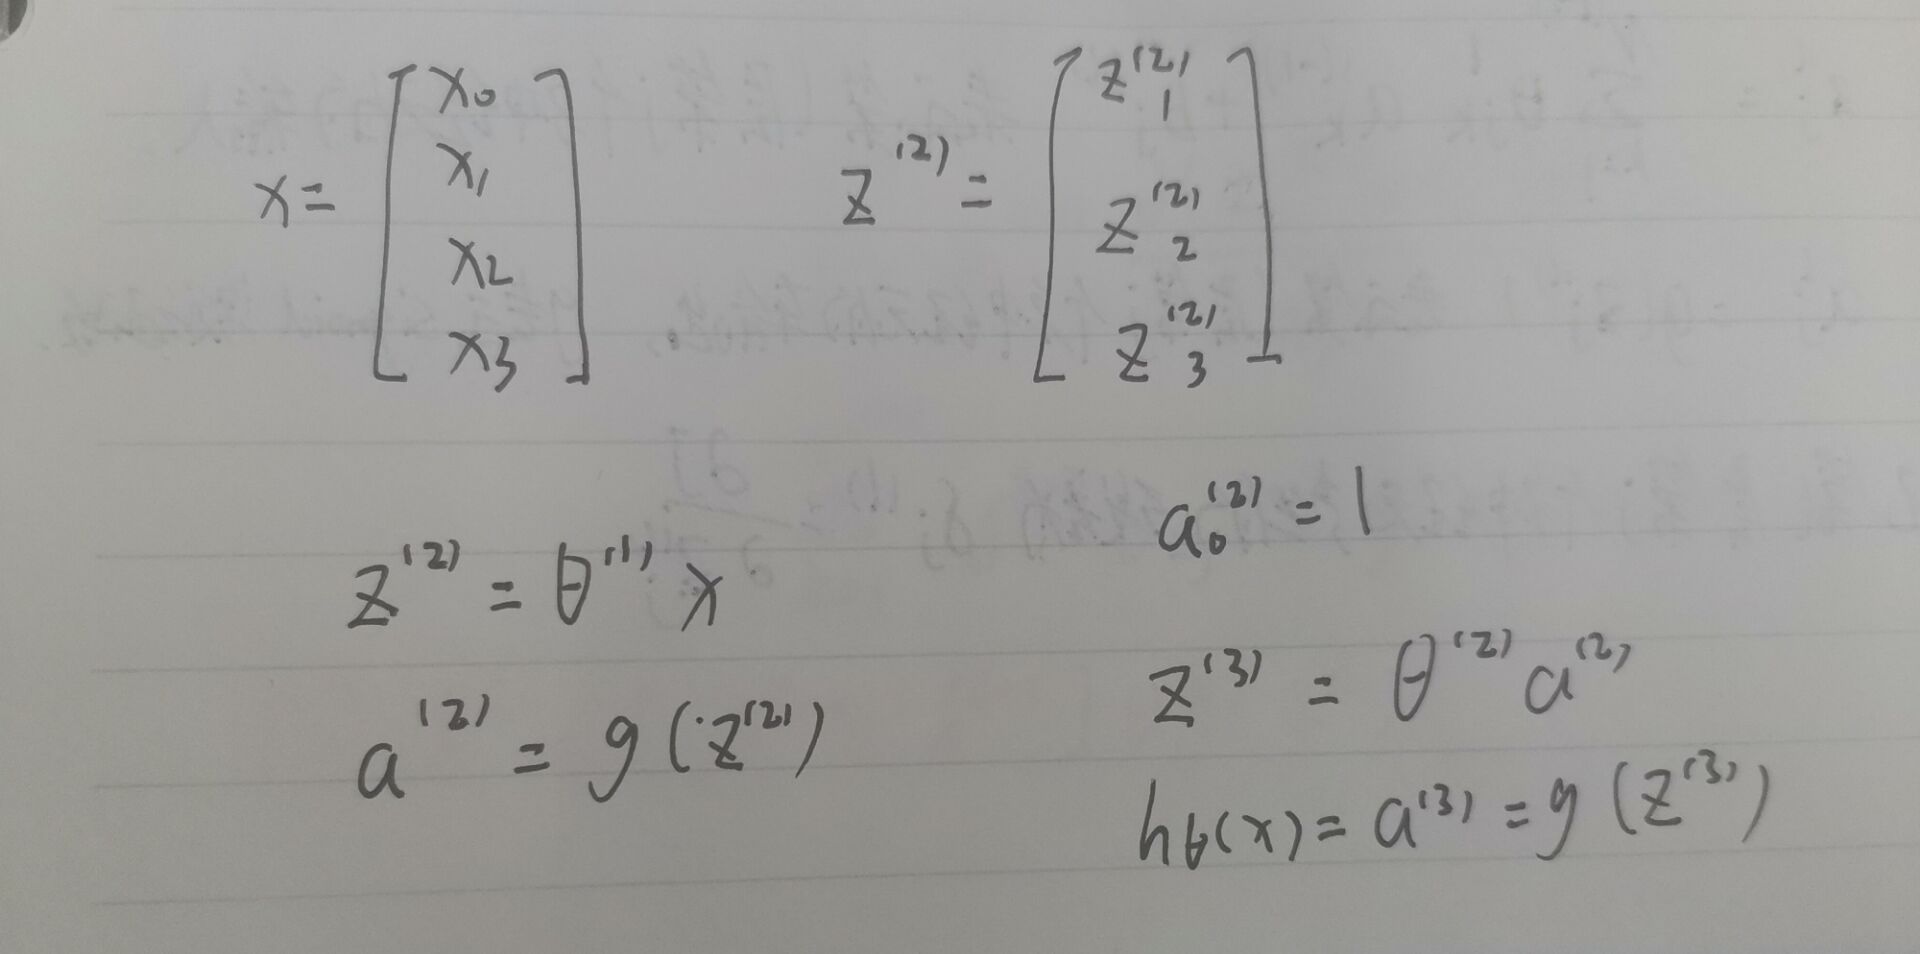 x = [x₀ x₁ x₂ x₃]
z⁽²⁾ = [z₁⁽²⁾ z₂⁽²⁾ z₃⁽²⁾]
z⁽²⁾ = θ⁽¹⁾ x
a⁽²⁾ = g(z⁽²⁾)
a₀⁽²⁾ = 1
z⁽³⁾ = θ⁽²⁾ a⁽²⁾
hθ(x) = a⁽³⁾ = g(z⁽³⁾)